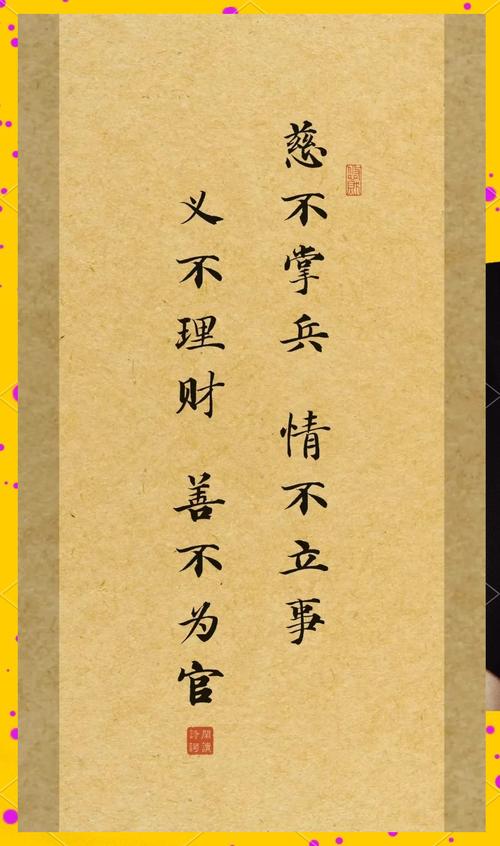 慈不掌兵 情不立事
义不理财 善不为官